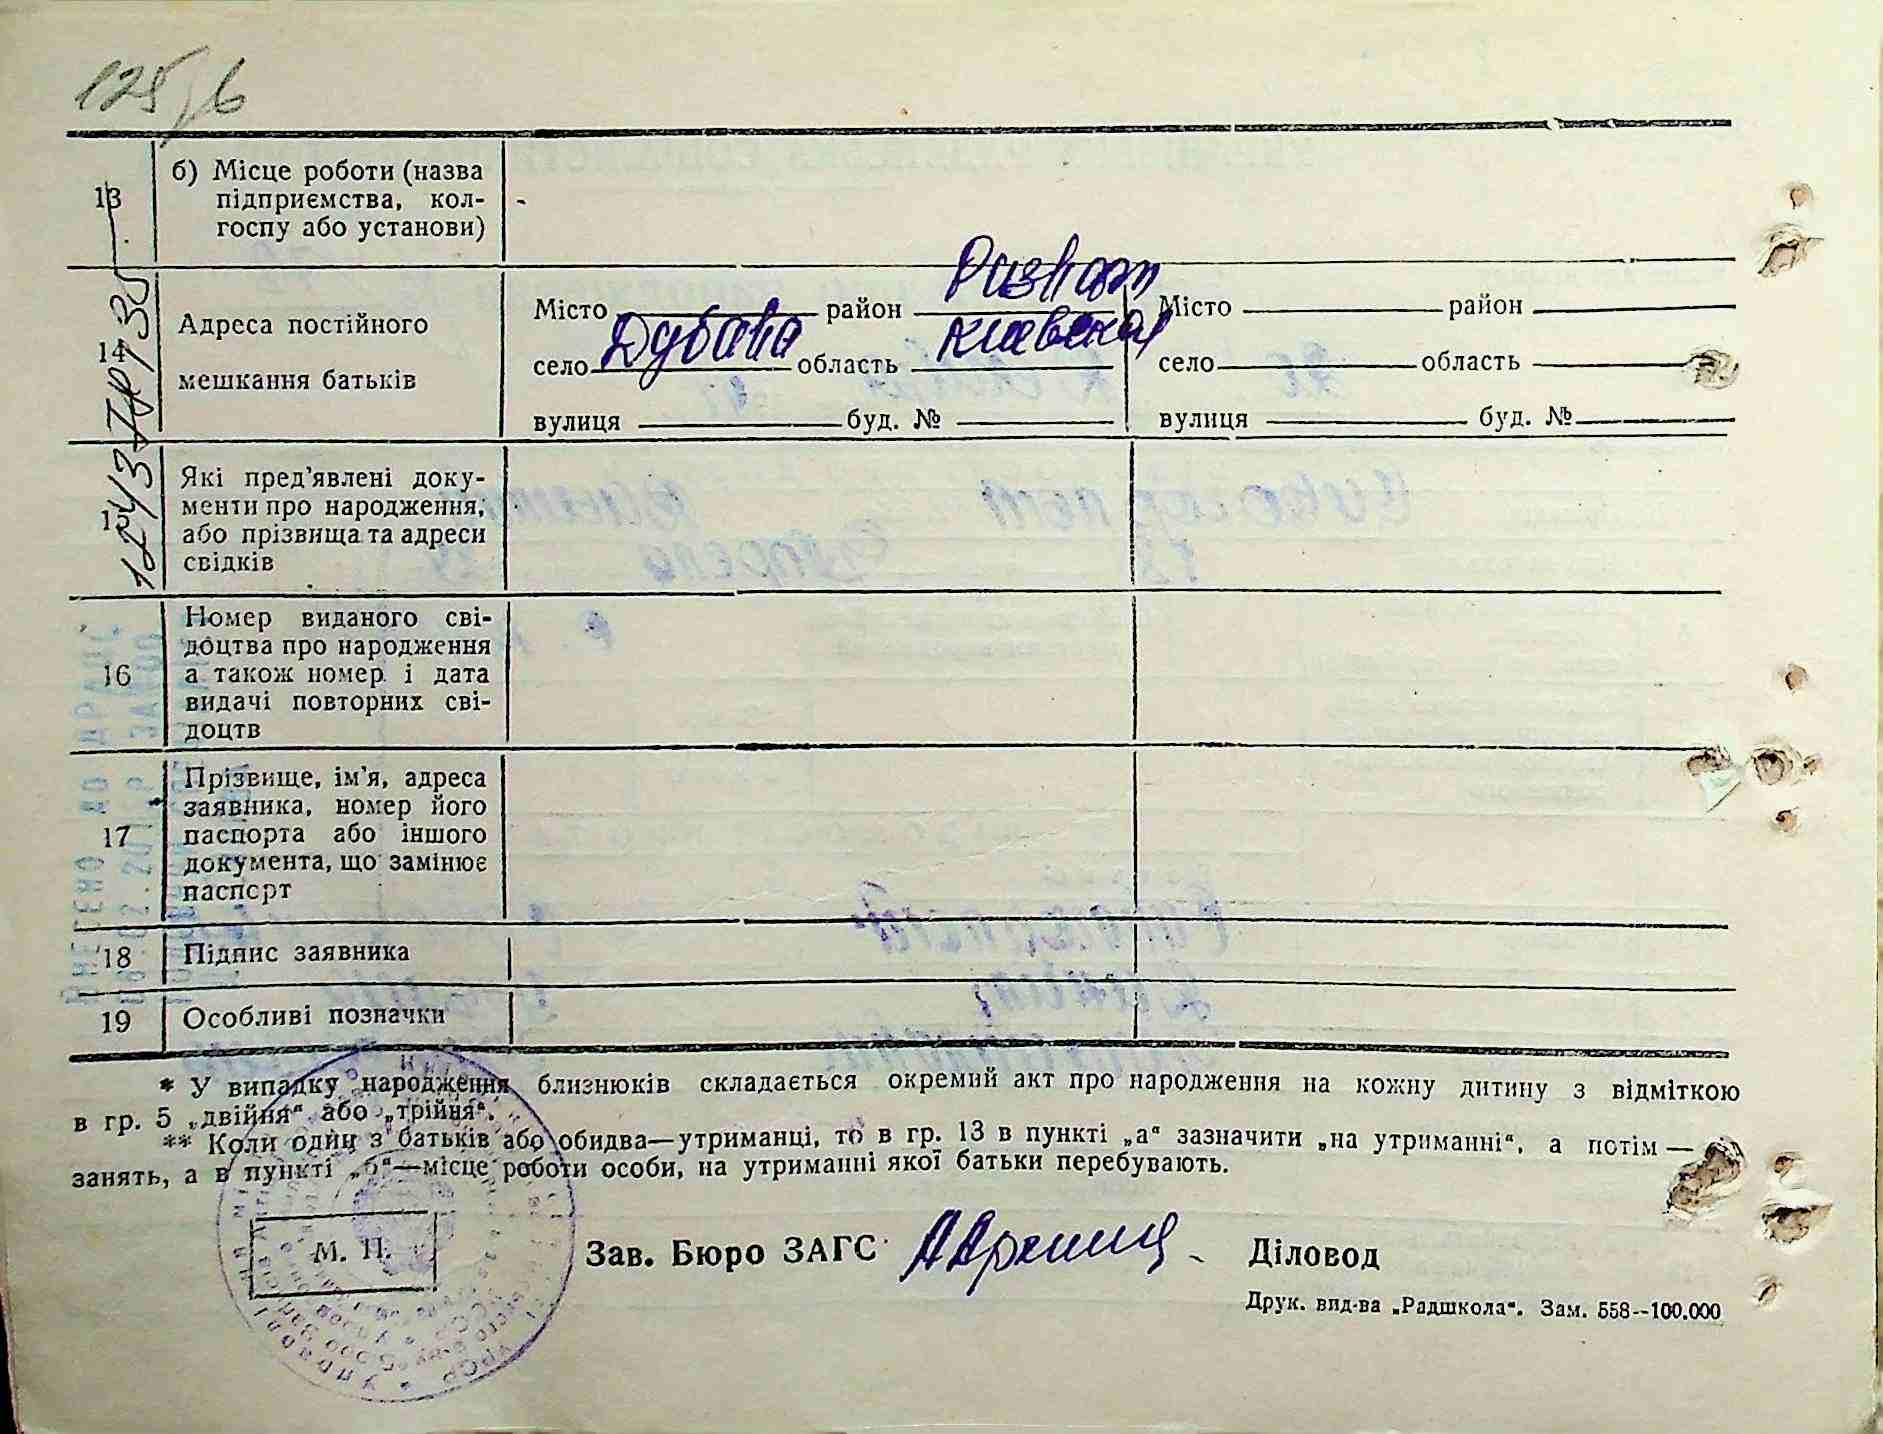 125
13
б) Місце роботи (назва
підприємства, кол-
госпу або установи)
14
Адреса постійного
мешкання батьків
Місто район Місто район
село Дубава область Киевская село область
вулиця буд. № вулиця буд. №
Які пред'явлені доку-
менти про народження,
або прізвища та адреси
свідків
16
Номер виданого сві-
доцтва про народження
а також номер і дата
видачі повторних сві-
доцтв
17
Прізвище, ім'я, адреса
заявника, номер його
паспорта або іншого
документа, що замінює
паспорт
18 Підпис заявника
19 Особливі позначки
* У випадку народження близнюків складається окремий акт про народження на кожну дитину з відміткою
в гр. 5 „двійня“ або „трійня“.
** Коли один з батьків або обидва—утриманці, то в гр. 13 в пункті „а“ зазначити „на утриманні“, а потім—
занять, а в пункті „б“—місце роботи особи, на утриманні якої батьки перебувають.
М. П.
Зав. Бюро ЗАГС Діловод
Друк. вид-ва „Радшкола“. Зам. 558--100.000